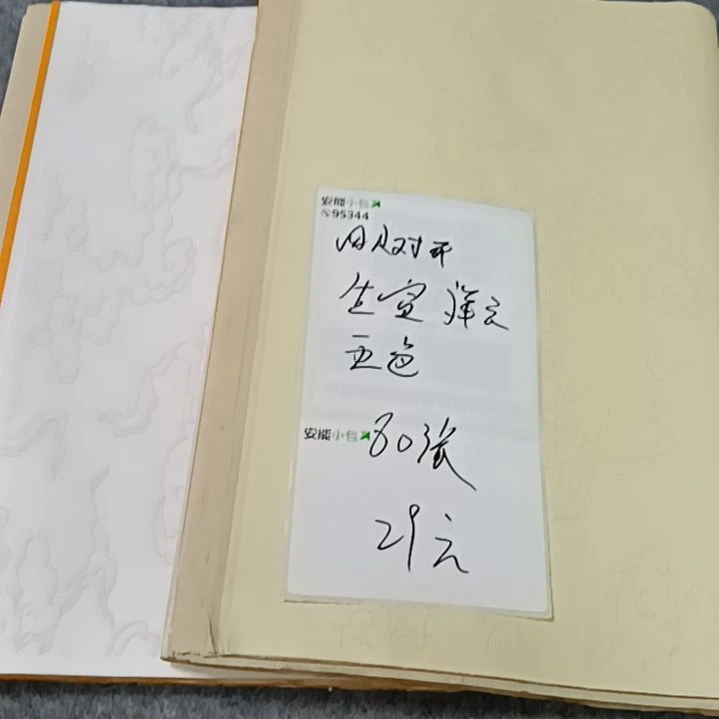 安能小包
95344
四尺对开
生宣 祥云
五色
安能小包
80张
29元